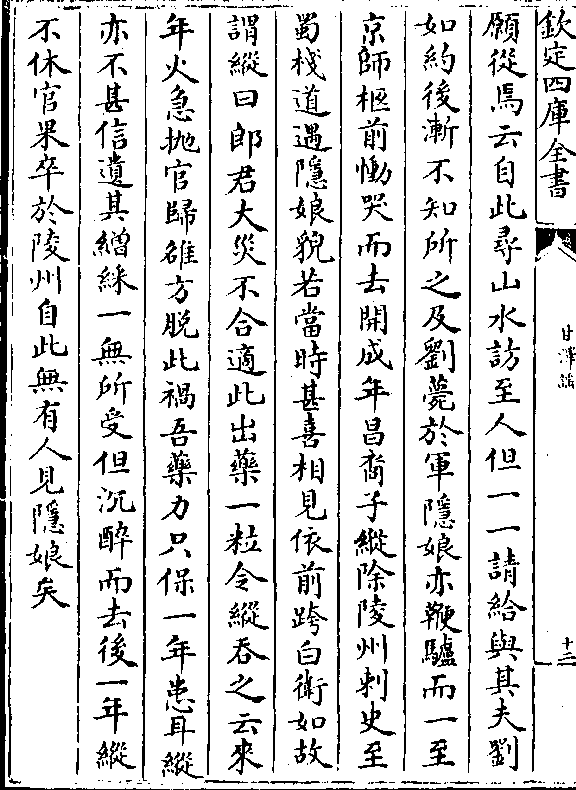 欽定四庫全書
甘澤謠
十二
願從焉云自此尋山水訪至人但一一請給與其夫劉
如約後漸不知所之及劉薨於軍隱娘亦鞭驢而一至
京師柩前慟哭而去開成年昌裔子縱除陵州刺史至
蜀棧道遇隱娘貌若當時甚喜相見依前跨白衛如故
謂縱曰郎君大災不合適此出藥一粒令縱吞之云來
年火急抛官歸雒方脱此禍吾藥力只保一年患耳縱
亦不甚信遺其繒綵一無所受但沉醉而去後一年縱
不休官果卒於陵州自此無有人見隱娘矣